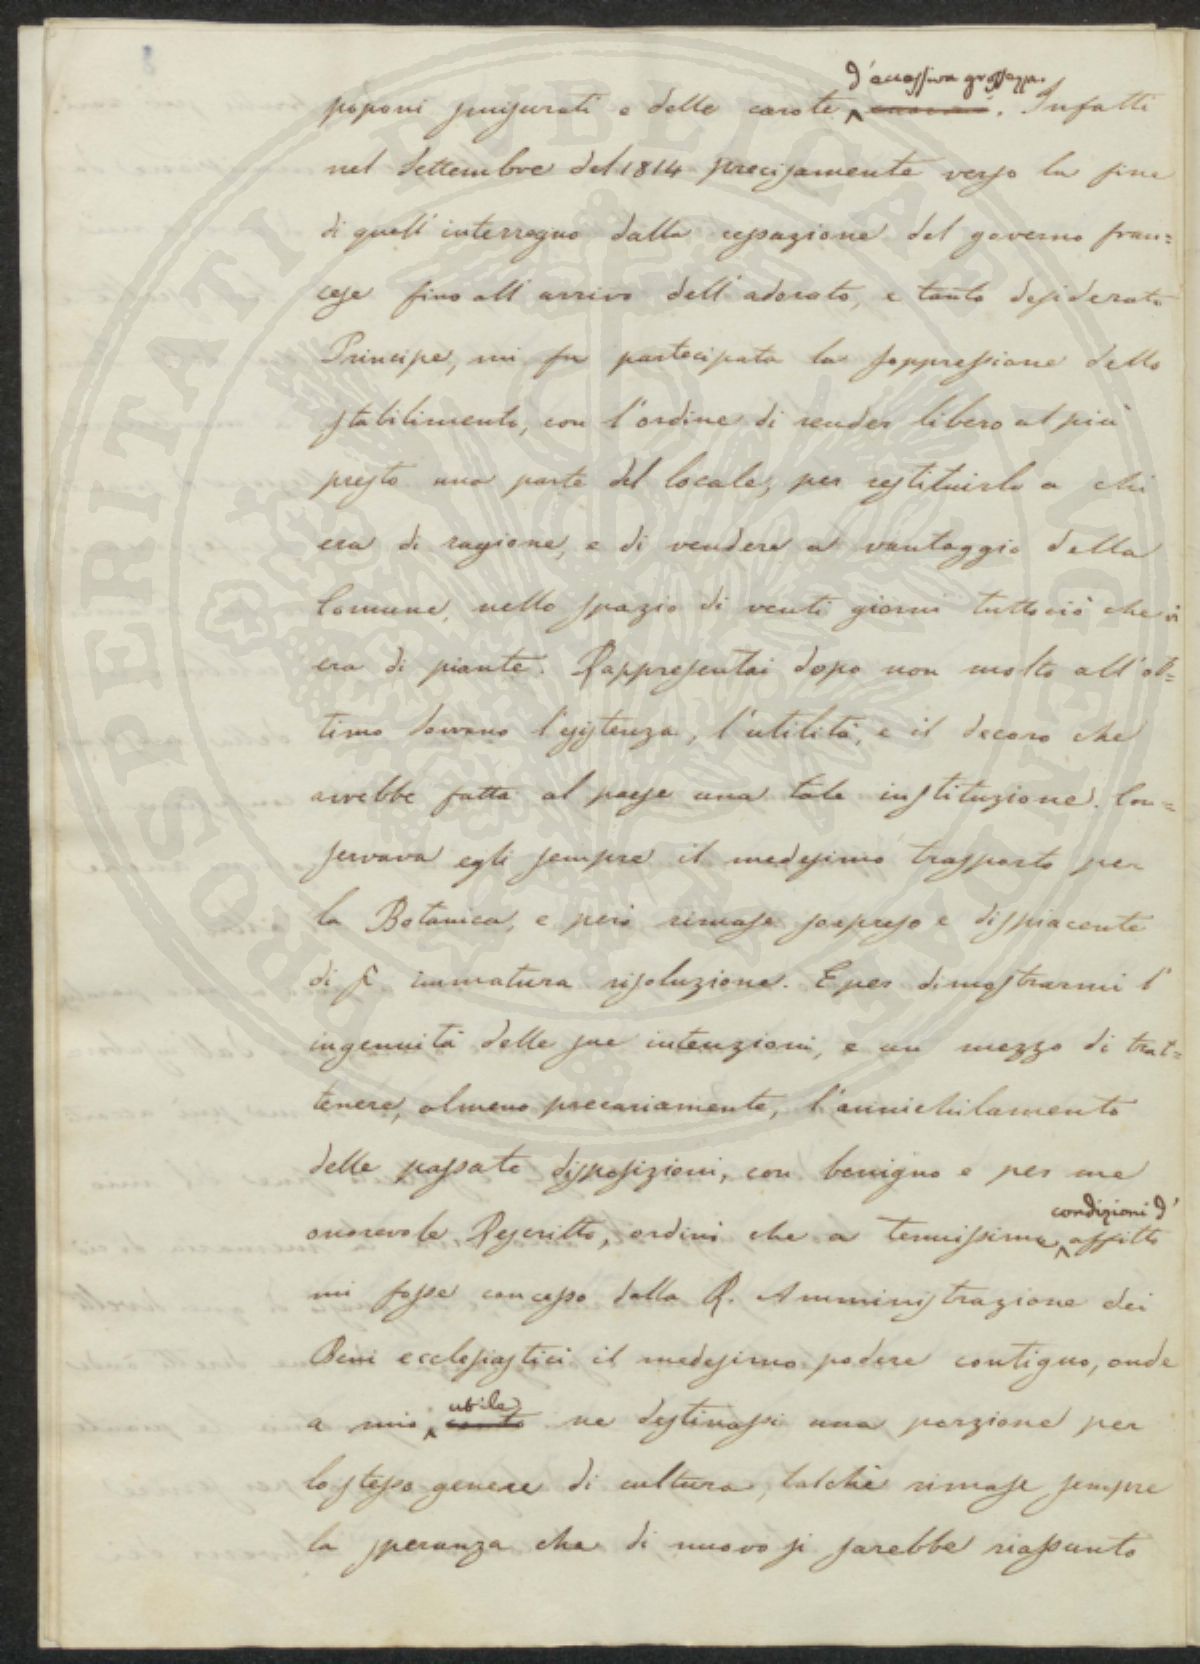 d'eccessiva grossezza.
poponi smisurati e delle carote enormi. Infatti
nel Settembre del 1814 precisamente verso la fine
di quell' interregno dalla cessazione del governo fran=
cese fino all' arrivo dell' adorato, e tanto desiderato
Principe, mi fu partecipata la soppressione dello
stabilimento, con l'ordine di render libero al più
presto una parte del locale, per restituirlo a chi
era di ragione, e di vendere a vantaggio della
Comune, nello spazio di venti giorni tuttociò che vi
era di piante. Rappresentai dopo non molto all' ot=
timo Sovrano l'esistenza, l'utilità, e il decoro che
avrebbe fatta al paese una tale instituzione. Con=
servava egli sempre il medesimo trasporto per
la Botanica, e però rimase sorpreso e dispiacente
di sì immatura risoluzione. E per dimostrarmi l'
ingenuità delle sue intenzioni, e un mezzo di trat=
tenere, almeno precariamente, l'annichilamento
delle passate disposizioni, con benigno e per me
condizioni d'
onorevole Rescritto, ordinò che a tenuissime affitto
mi fosse concesso dalla R. Amministrazione dei
Beni ecclesiastici il medesimo podere contiguo, onde
utile
a mio conto ne destinassi una porzione per
lo stesso genere di cultura, talchè rimase sempre
la speranza che di nuovo si sarebbe riassunto
PROSPERITATI PVBLICAE AVGENDAE